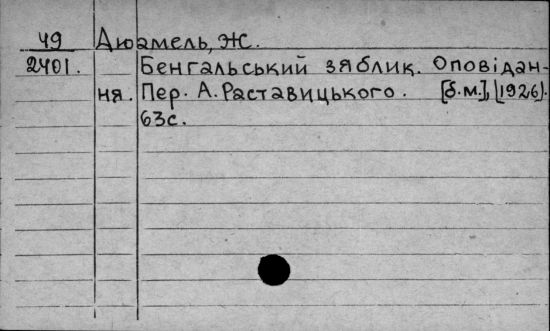 49 Дюамель, Ж.
2401. Бенгальський зяблик. Оповідан-
ня. Пер. А. Раставицького. [б.м.], (1926).
63с.